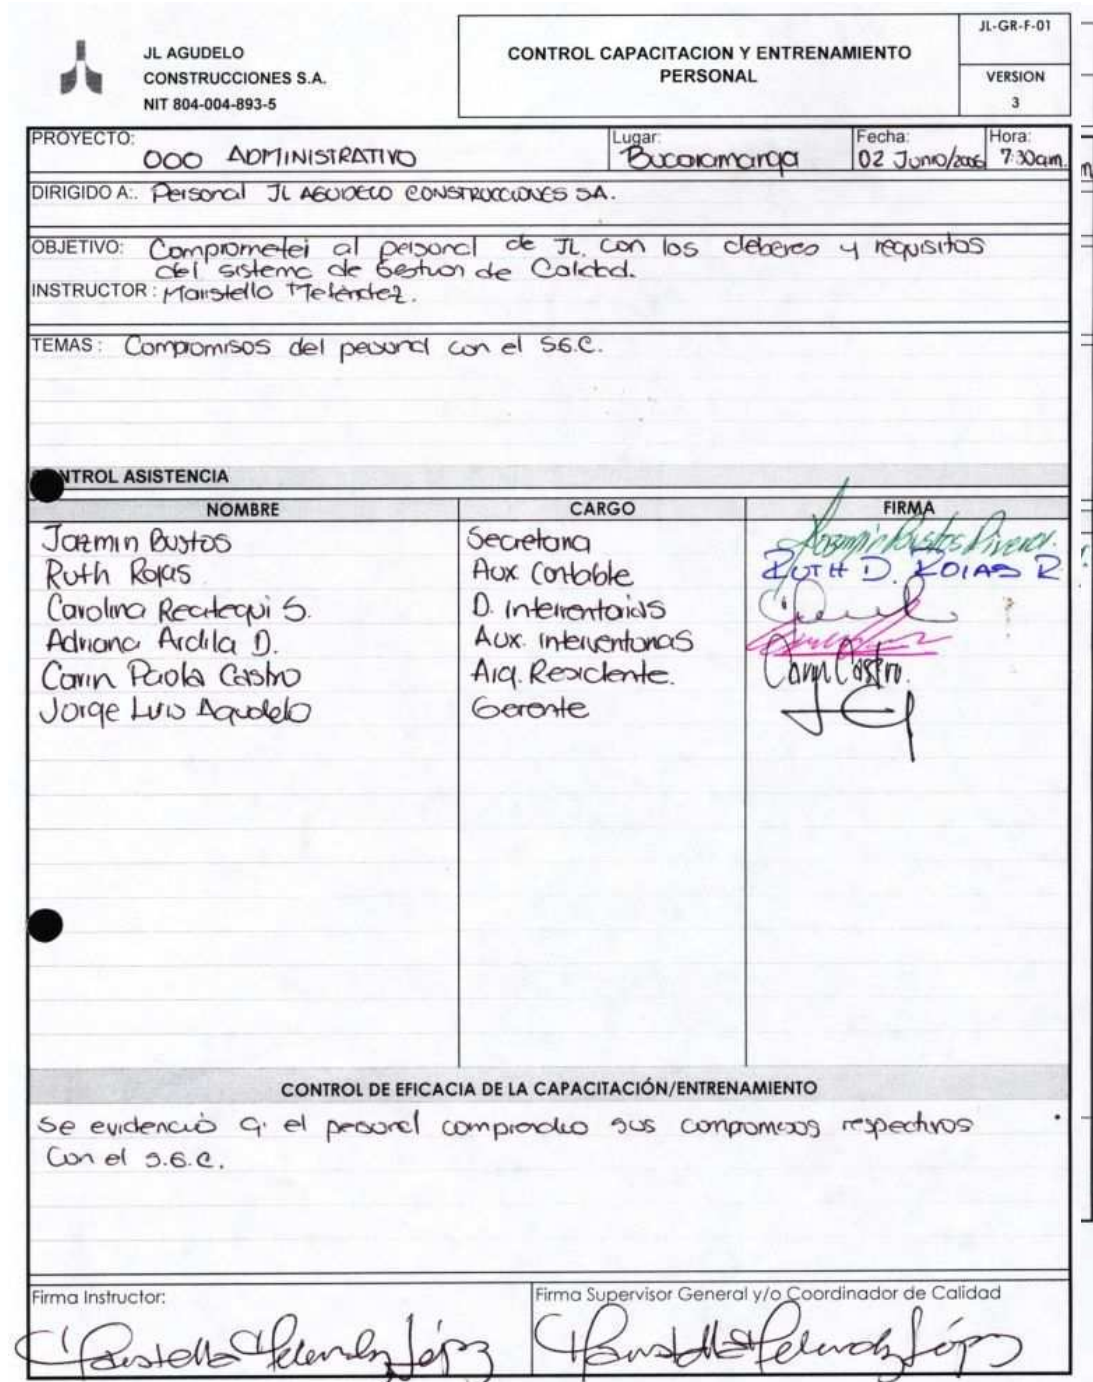 JL AGUDELO
CONSTRUCCIONES S.A.
NIT 804-004-893-5
CONTROL CAPACITACION Y ENTRENAMIENTO
PERSONAL
JL-GR-F-01
VERSION
3
PROYECTO: 000 ADMINISTRATIVO
Lugar: Bucaramanga
Fecha: 02 Junio/2006
Hora: 7:30am.
DIRIGIDO A:. Personal JL AGUDELO CONSTRUCCIONES SA.
OBJETIVO: Comprometer al personal de JL. con los deberes y requisitos
del sistema de Gestion de Calidad.
INSTRUCTOR: Maristella Meléndez.
TEMAS: Compromisos del personal con el S.G.C.
NTROL ASISTENCIA
NOMBRE CARGO FIRMA
Jazmin Bustos Secretaria Jazmin Bustos Rivera.
Ruth Rojas Aux Contable RUTH D. ROJAS R
Carolina S. D. Interventorias
Adriana Ardila D. Aux. Interventorias
Carin Paola Castro Arq. Residente. Caryn Castro.
Jorge Luis Agudelo Gerente
CONTROL DE EFICACIA DE LA CAPACITACIÓN/ENTRENAMIENTO
Se evidenció q. el personal comprendio sus compromisos respectivos
Con el S.G.C.
Firma Instructor:
Maristella Melendez López
Firma Supervisor General y/o Coordinador de Calidad
Maristella Melendez López